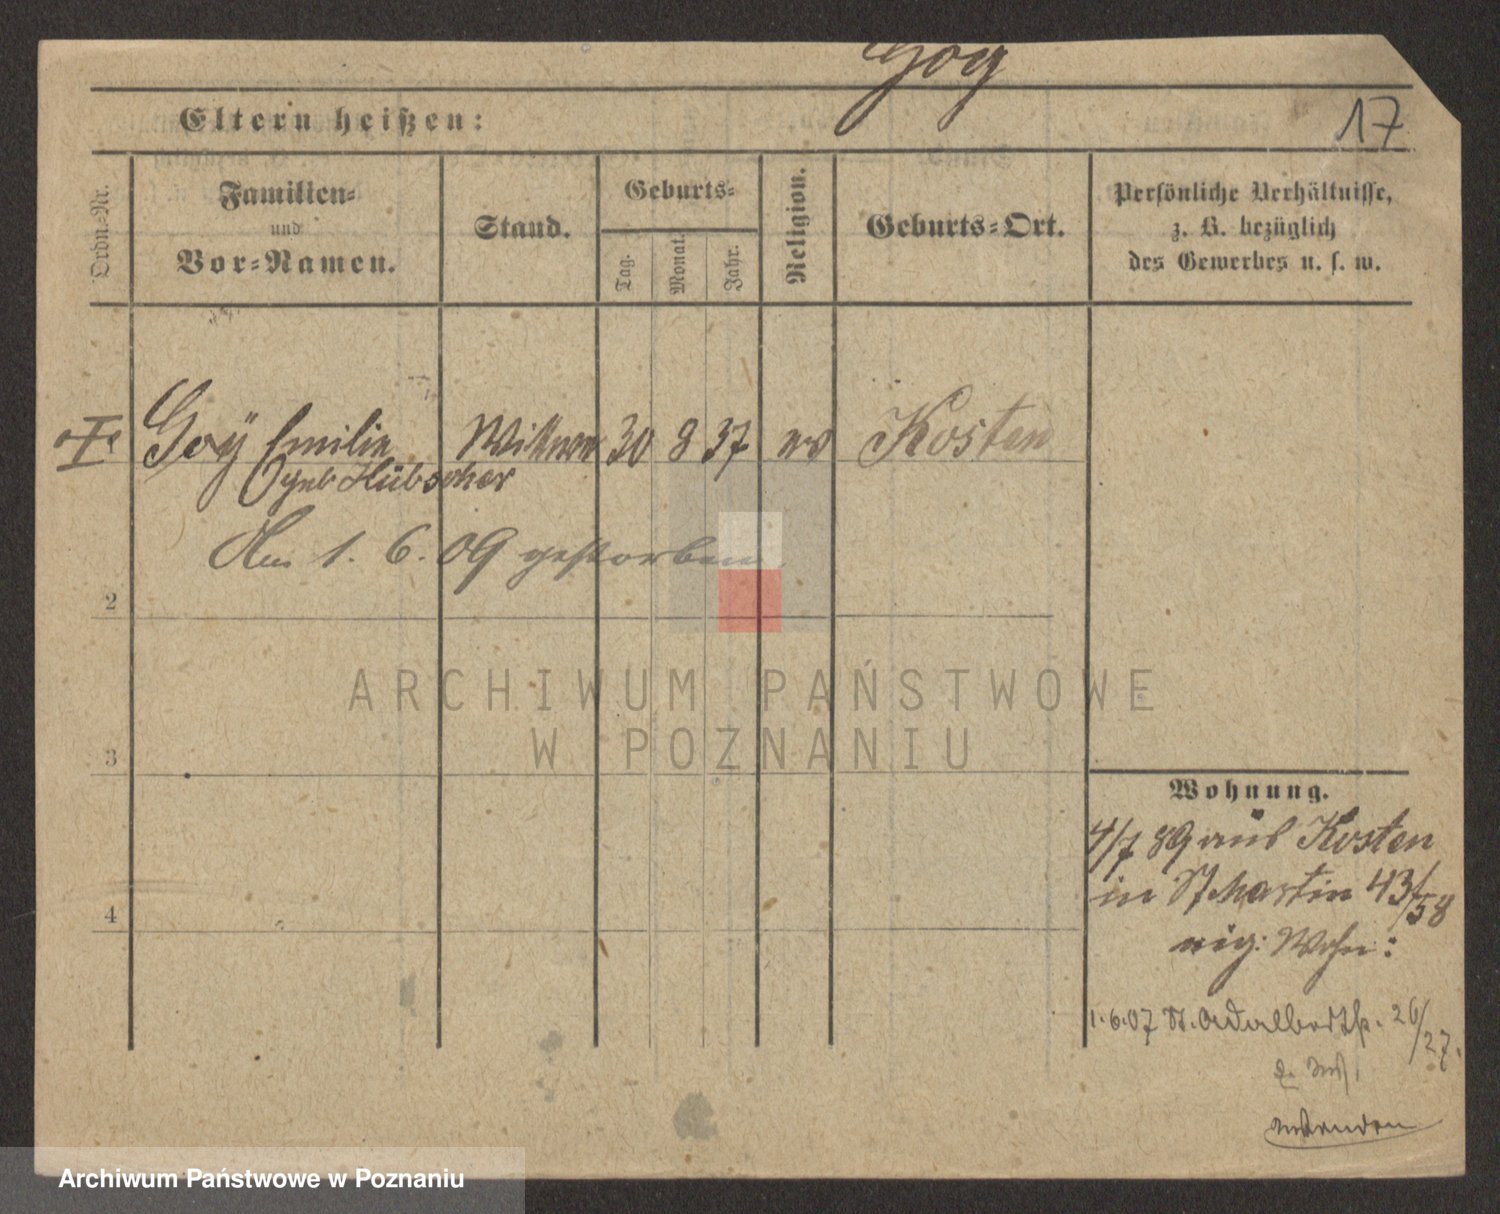 Goy
17
Eltern heißen:
Ordn.-Nr.
Familien-
und
Vor-Namen.
Stand.
Geburts-
Tag.
Monat.
Jahr.
Religion.
Geburts-Ort.
Persönliche Verhältnisse,
z. B. bezüglich
des Gewerbes u. s. w.
Goÿ Emilie Wittwe 30 8 37 ev Kosten
geb Hübscher
Am 1. 6. 09 gestorben
2
3
4
Wohnung.
4/7 89 aus Kosten
in St Martin 43/58
eig: Wohn:
1.6.07 St. Adalbertstr. 26/27.
wenden
ARCHIWUM PAŃSTWOWE
W POZNANIU
Archiwum Państwowe w Poznaniu